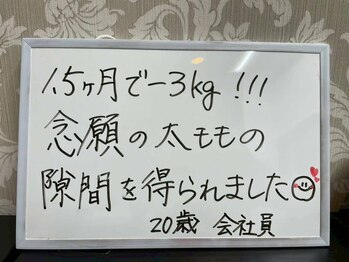 1.5ヶ月で-3kg!!!
念願の太ももの
隙間を得られました
20歳 会社員